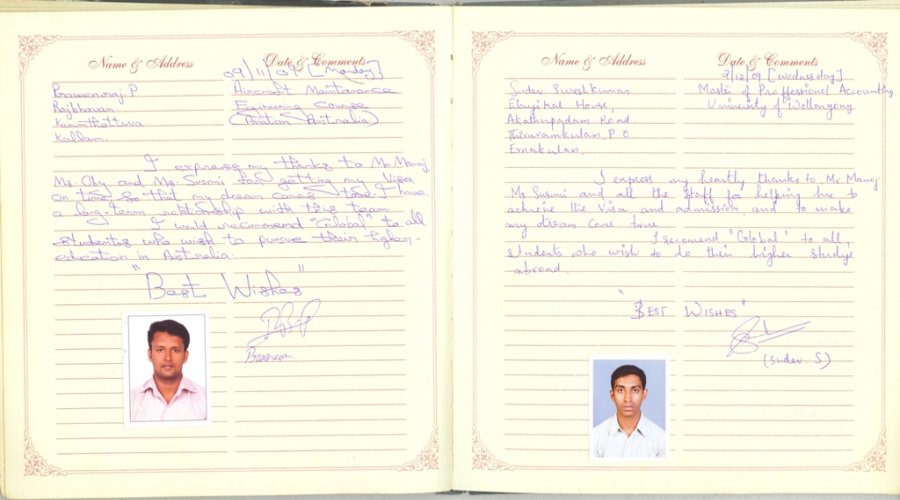 Name & Address
Date & Comments
09/11/09 [Monday]
Praveenraj.P
Aircraft Maintanance
Rajbhavan
Engineering Course
Karumthottuva
(Aviation Australia)
Kollam
I express my thanks to Mr. Manoj,
Ms. and Ms. Susmi for getting my Visa
on time, so that my dream comes true. I have
a long-term relationship with this team.
I would recommend "Global" to all
students who wish to pursue their higher-
education in Australia.
"Best Wishes"
Praveen
Name & Address
Date & Comments
2/12/09 [Wednesday]
Sudev Sivakumar
Master of Proffessional Accounting
House,
University of Wollongong
Road
P.O
Ernakulam.
I express my heartly thanks to Mr Manoj
Ms Susmi and all the staff for helping me to
achieve the Visa and admission and to make
my dream come true
I recomend "Global" to all,
students who wish to do their higher studys
abroad.
"BEST WISHES"
(Sudev S)